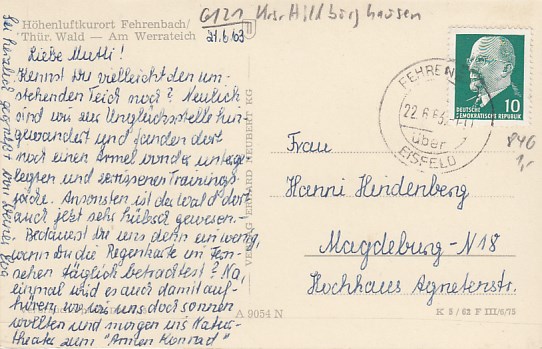 6121 Krs. Hildburghausen
Höhenluftkurort Fehrenbach/
Thür. Wald — Am Werrateich
21.6.63
Liebe Mutti!
Kennst Du vielleicht den um-
stehenden Teich noch? Neulich
sind wir zur Unglücksstelle hin
gewandert und fanden dort
noch einen Ärmel von der unterge
legten und zerrissenen Trainings
jacke. Ansonsten ist der Wald dort
auch jetzt sehr hübsch gewesen.
Bedauerst Du uns denn ein wenig,
wenn Du die Regenkarte im Fern
sehen täglich betrachtest? Na,
einmal wird es auch damit auf-
hören, wo wir uns doch sonnen
wollten und morgen ins Natur-
theater zum "Armen Konrad"
Sei herzlich gegrüßt von Deiner
VERLAG GERHARD NEUBERT KG
FEHRENBACH
22.6.63
über
EISFELD
DEUTSCHE
DEMOKRATISCHE REPUBLIK
10
840
1,-
Frau
Hanni Heidenberg
Magdeburg-N18
Hochhaus Agnetenstr.
A 9054 N
K 5/62 F III/6/75